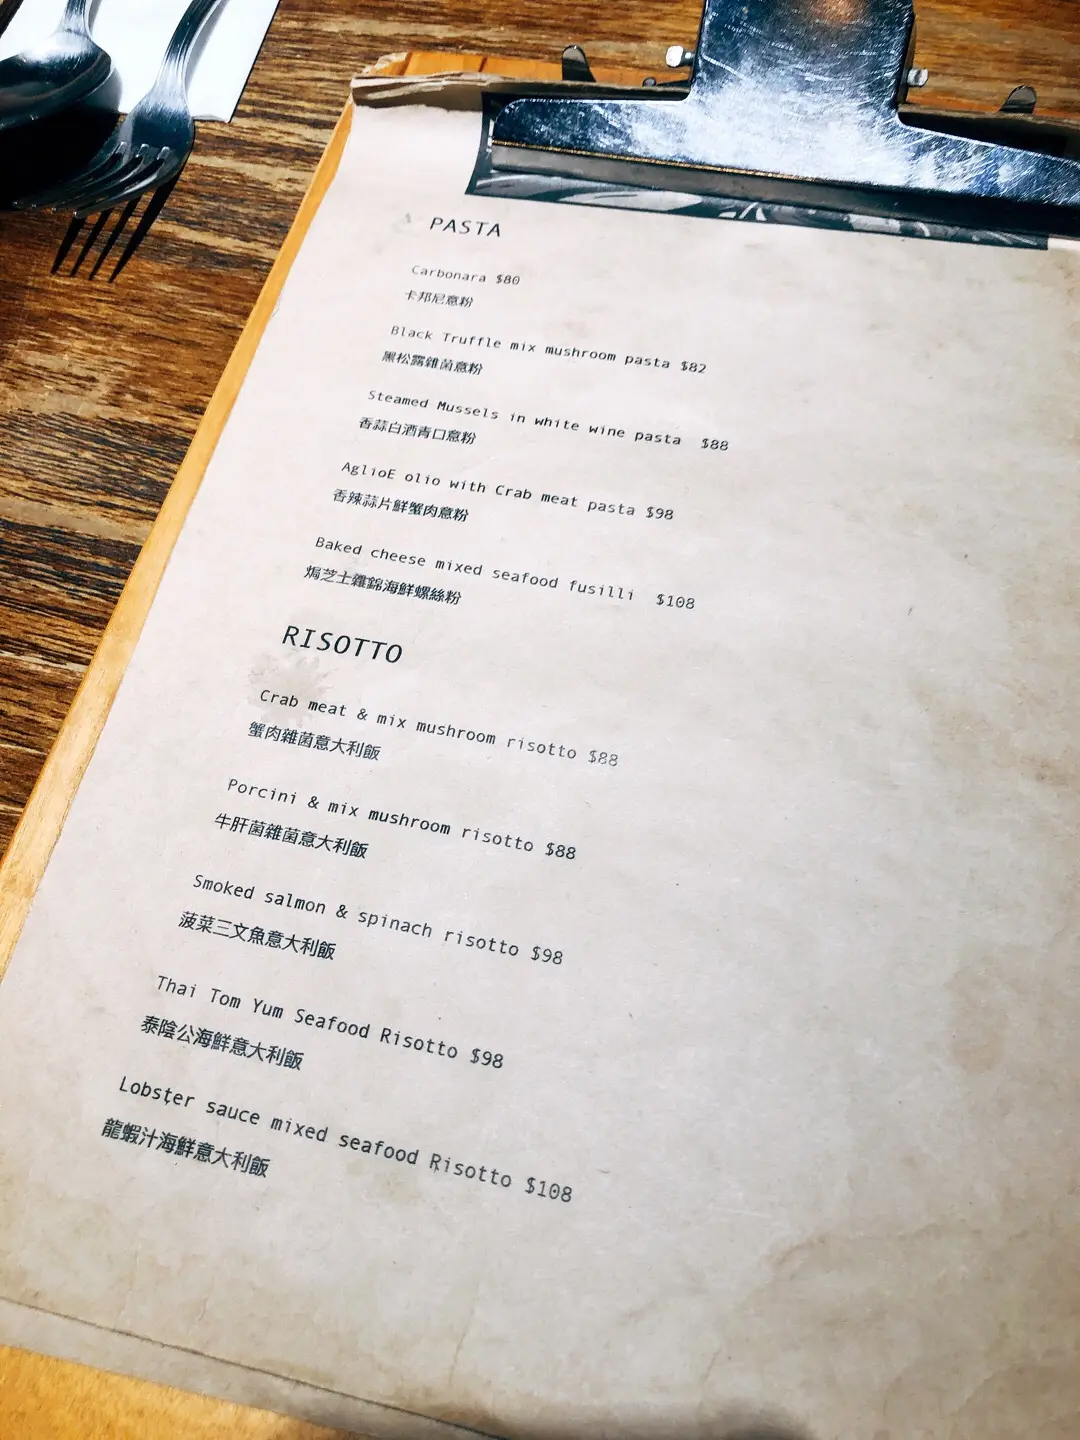 PASTA
Carbonara $80
卡邦尼意粉
Black Truffle mix mushroom pasta $82
黑松露雜菌意粉
Steamed Mussels in white wine pasta $88
香蒜白酒青口意粉
AglioE olio with Crab meat pasta $98
香辣蒜片鮮蟹肉意粉
Baked cheese mixed seafood fusilli $108
焗芝士雜錦海鮮螺絲粉
RISOTTO
Crab meat & mix mushroom risotto $88
蟹肉雜菌意大利飯
Porcini & mix mushroom risotto $88
牛肝菌雜菌意大利飯
Smoked salmon & spinach risotto $98
菠菜三文魚意大利飯
Thai Tom Yum Seafood Risotto $98
泰陰公海鮮意大利飯
Lobster sauce mixed seafood Risotto $108
龍蝦汁海鮮意大利飯